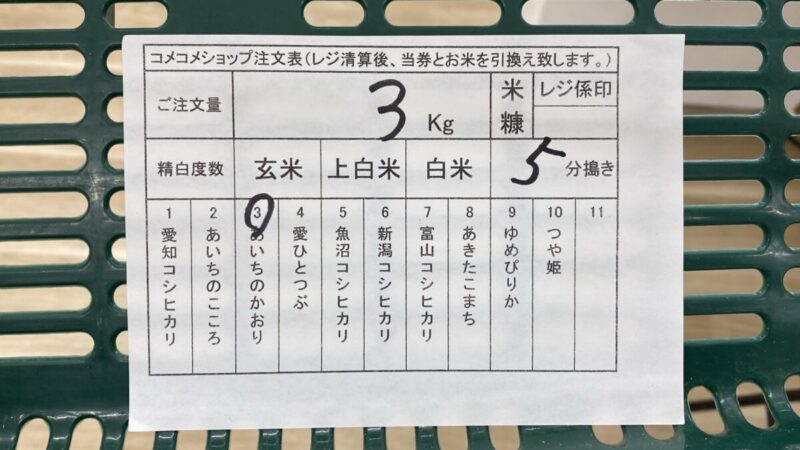 コメコメショップ注文表(レジ清算後、当券とお米を引換え致します。)
ご注文量 3 Kg 米糠 レジ係印
精白度数 玄米 上白米 白米 5 分搗き
1 愛知コシヒカリ
2 あいちのこころ
3 あいちのかおり
4 愛ひとつぶ
5 魚沼コシヒカリ
6 新潟コシヒカリ
7 富山コシヒカリ
8 あきたこまち
9 ゆめぴりか
10 つや姫
11